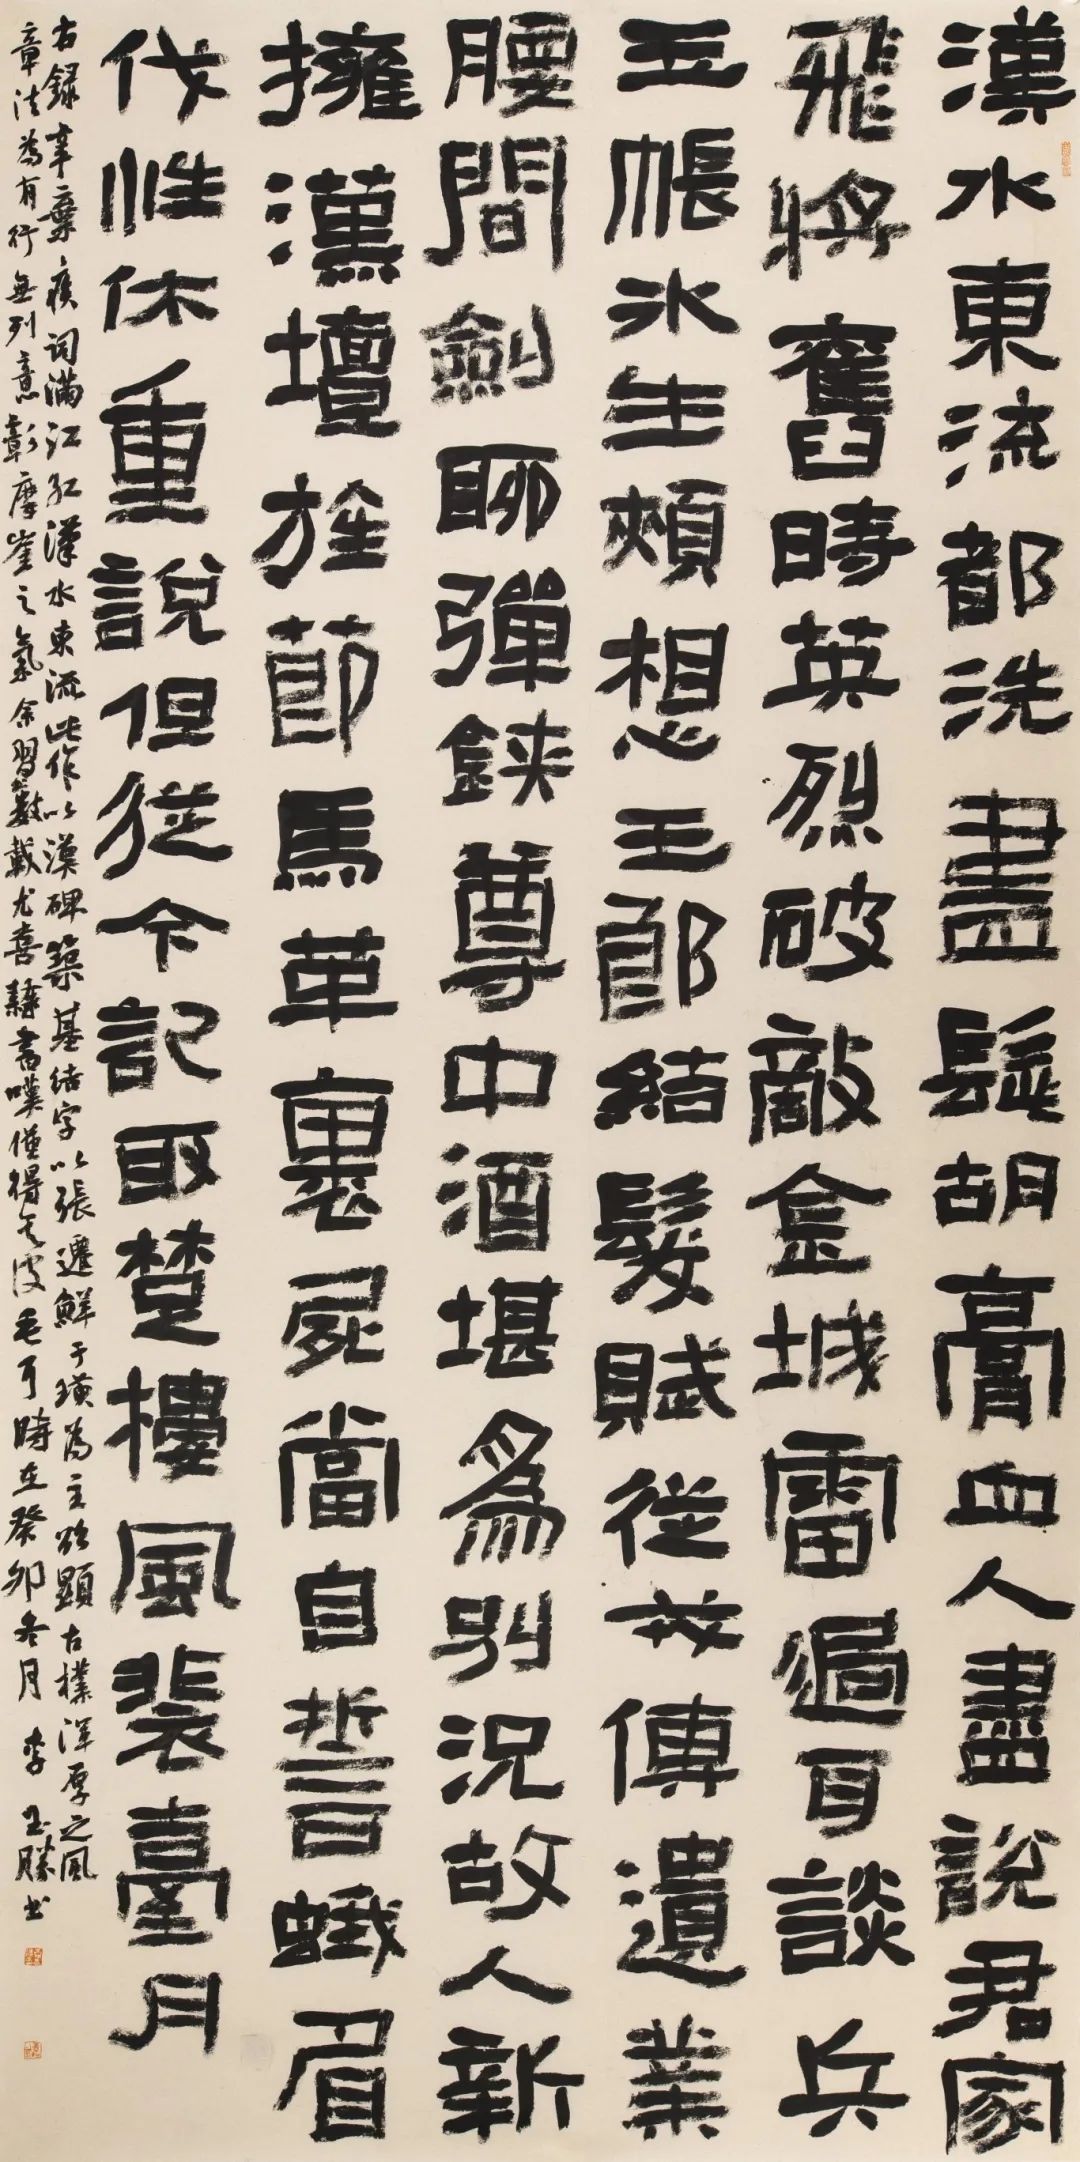 漢水東流都洗盡髭胡膏血人盡說君家
飛將舊時英烈破敵金城雷過耳談兵
玉帳冰生頰想王郎結髮賦從戎傳遺業
腰間劍聊彈鋏尊中酒堪為別況故人新
擁漢壇旌節馬革裹屍當自誓蛾眉
伐性休重說但從今記取楚樓風裴臺月
右録辛棄疾詞滿江紅漢水東流此作以漢碑築基結字以張遷鮮于璜為主欲顯古樸渾厚之風
章法為有行無列意彰摩崖之氣余習數載尤喜隸書嘆僅得其皮毛耳時在癸卯冬月李玉勝书